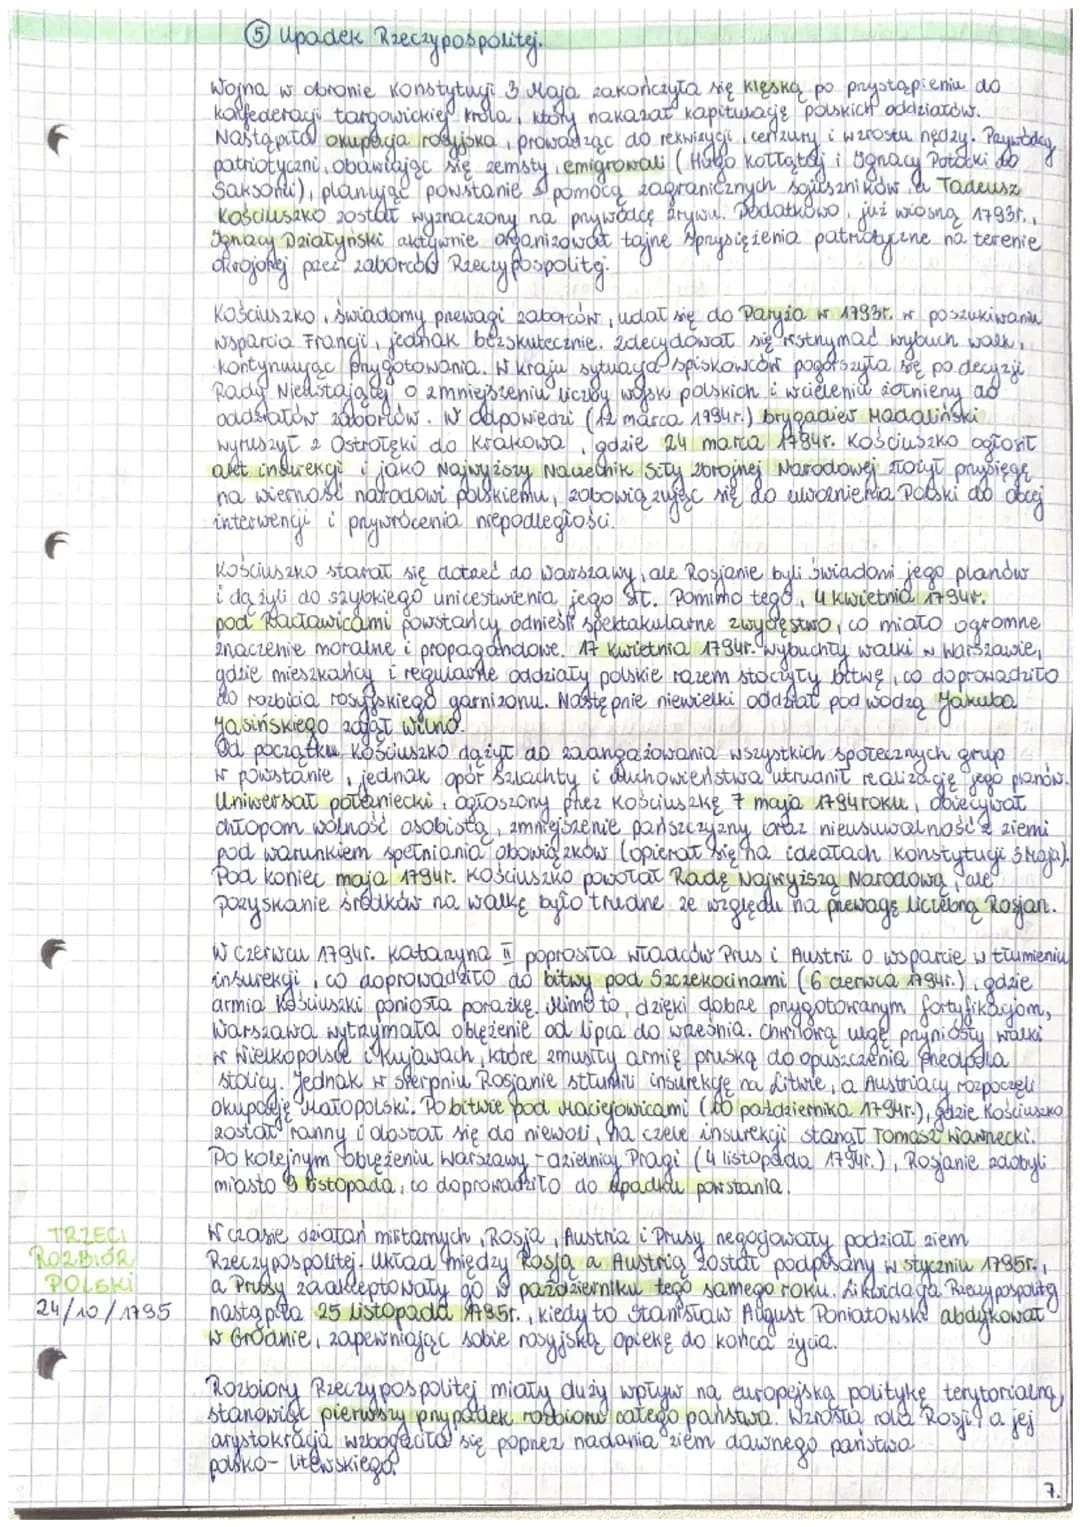 ⑤ Upadek Rzeczypospolitej.
Wojna w obronie Konstytucji 3 Maja zakończyła się klęską po przystąpieniu do
konfederacji targowickiej króla, który nakazał kapitulację polskich oddziałów.
Nastąpiła okupacja rosyjska, prowadząc do rekwizycji, cenzury i wzrostu nędzy. Przywódcy
patriotyczni, obawiając się zemsty, emigrowali (Hugo Kołłątaj i Ignacy Potocki do
Saksonii), planując powstanie z pomocą zagranicznych sojuszników, a Tadeusz
Kościuszko został wyznaczony na przywódcę zrywu. Dodatkowo, już wiosną 1793r.,
Ignacy Działyński aktywnie organizował tajne sprzysiężenia patriotyczne na terenie
okrojonej przez zaborców Rzeczypospolitej.
Kościuszko, świadomy przewagi zaborców, udał się do Paryża w 1793r. w poszukiwaniu
wsparcia Francji, jednak bezskutecznie. Zdecydował się wstrzymać wybuch walk,
kontynuując przygotowania. W kraju sytuacja spiskowców pogorszyła się po decyzji
Rady Nieustającej o zmniejszeniu liczby wojsk polskich i wcieleniu żołnierzy do
oddziałów zaborców. W odpowiedzi (12 marca 1794r.) brygadier Madaliński
wyruszył z Ostrołęki do Krakowa, gdzie 24 marca 1794r. Kościuszko ogłosił
akt insurekcji i jako Najwyższy Naczelnik Siły Zbrojnej Narodowej złożył przysięgę
na wierność narodowi polskiemu, zobowiązując się do uwolnienia Polski do obcej
interwencji i przywrócenia niepodległości.
Kościuszko starał się dotrzeć do Warszawy, ale Rosjanie byli świadomi jego planów
i dążyli do szybkiego unicestwienia jego sił. Pomimo tego, 4 kwietnia 1794r.
pod Racławicami powstańcy odnieśli spektakularne zwycięstwo, co miało ogromne
znaczenie moralne i propagandowe. 17 kwietnia 1794r. wybuchły walki w Warszawie,
gdzie mieszkańcy i regularne oddziały polskie razem stoczyły bitwę, co doprowadziło
do rozbicia rosyjskiego garnizonu. Następnie niewielki oddział pod wodzą Jakuba
Jasińskiego zajął Wilno.
Od początku Kościuszko dążył do zaangażowania wszystkich społecznych grup
w powstanie, jednak opór szlachty i duchowieństwa utrudnił realizację jego planów.
Uniwersał połaniecki, ogłoszony przez Kościuszkę 7 maja 1794 roku, obiecywał
chłopom wolność osobistą, zmniejszenie pańszczyzny oraz nieusuwalność z ziemi
pod warunkiem spełniania obowiązków (opierał się na ideałach Konstytucji 3 Maja).
Pod koniec maja 1794r. Kościuszko powołał Radę Najwyższą Narodową, ale
pozyskanie środków na walkę było trudne ze względu na przewagę liczebną Rosjan.
W czerwcu 1794r. Katarzyna II poprosiła władców Prus i Austrii o wsparcie w tłumieniu
insurekcji, co doprowadziło do bitwy pod Szczekocinami (6 czerwca 1794r.), gdzie
armia Kościuszki poniosła porażkę. Mimo to, dzięki dobrze przygotowanym fortyfikacjom,
Warszawa wytrzymała oblężenie od lipca do września. Chwilową ulgę przyniosły walki
w Wielkopolsce i Kujawach, które zmusiły armię pruską do opuszczenia przedpola
stolicy. Jednak w sierpniu Rosjanie stłumili insurekcję na Litwie, a Austriacy rozpoczęli
okupację Małopolski. Po bitwie pod Maciejowicami (10 października 1794r.), gdzie Kościuszko
został ranny i dostał się do niewoli, na czele insurekcji stanął Tomasz Wawrzecki.
Po kolejnym oblężeniu Warszawy - dzielnicy Pragi (4 listopada 1794r.), Rosjanie zdobyli
miasto 9 listopada, co doprowadziło do upadku powstania.
W czasie działań militarnych, Rosja, Austria i Prusy negocjowały podział ziem
Rzeczypospolitej. Układ między Rosją a Austrią został podpisany w styczniu 1795r.,
a Prusy zaakceptowały go w październiku tego samego roku. Likwidacja Rzeczypospolitej
nastąpiła 25 listopada 1795r., kiedy to Stanisław August Poniatowski abdykował
w Grodnie, zapewniając sobie rosyjską opiekę do końca życia.
TRZECI
ROZBIÓR
POLSKI
24/10/1795
Rozbiory Rzeczypospolitej miały duży wpływ na europejską politykę terytorialną,
stanowiąc pierwszy przypadek rozbioru całego państwa. Wzrosła rola Rosji, a jej
arystokracja wzbogaciła się poprzez nadania ziem dawnego państwa
polsko-litewskiego.
7.